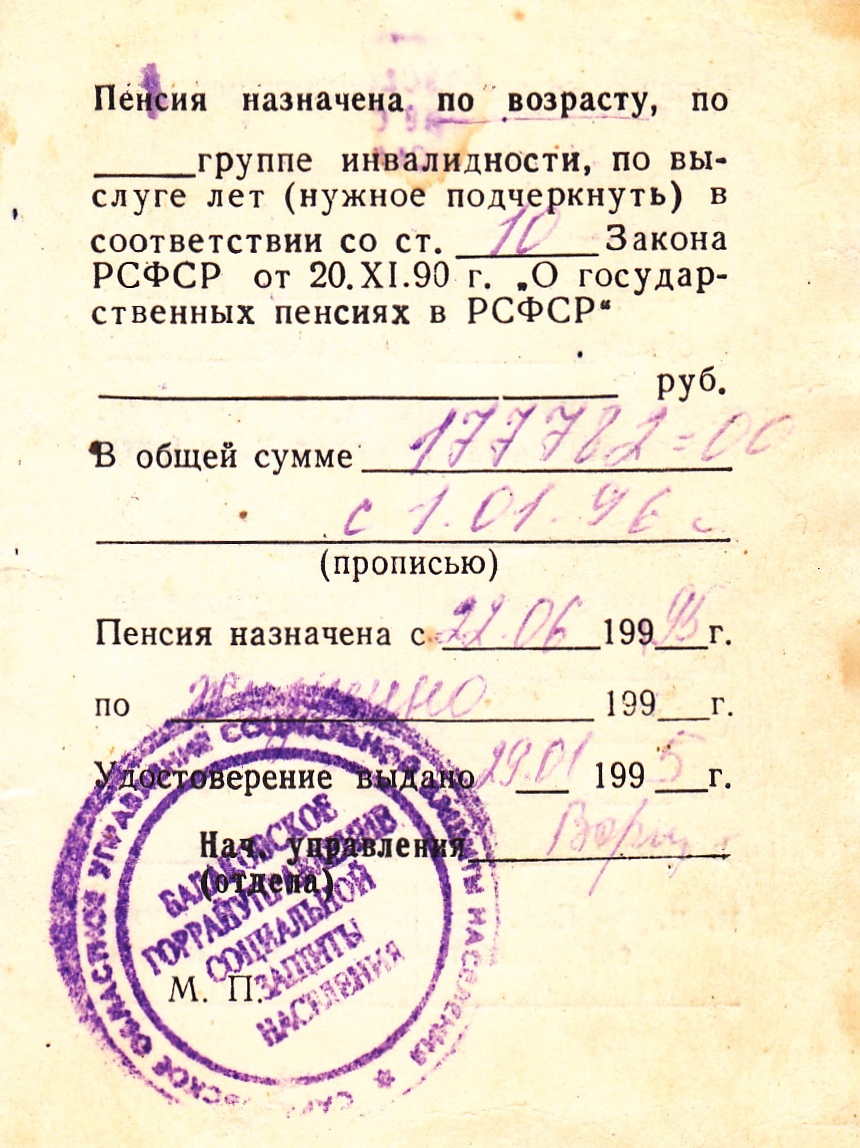 Пенсия назначена по возрасту, по
_____группе инвалидности, по вы-
слуге лет (нужное подчеркнуть) в
соответствии со ст. 10 Закона
РСФСР от 20.XI.90 г. „О государ-
ственных пенсиях в РСФСР“
руб.
В общей сумме 177782=00
с 1.01.96 г
(прописью)
Пенсия назначена с 22.06 199 95 г.
по пожизненно 199___г.
Удостоверение выдано 29.01 199 5 г.
Нач. управления
(отдела)
М. П.
ОБЛАСТНОЕ УПРАВЛЕНИЕ СОЦИАЛЬНОЙ ЗАЩИТЫ НАСЕЛЕНИЯ
БАЛАКОВСКОЕ
ГОРРАЙУПРАВЛЕНИЕ
СОЦИАЛЬНОЙ
ЗАЩИТЫ
НАСЕЛЕНИЯ